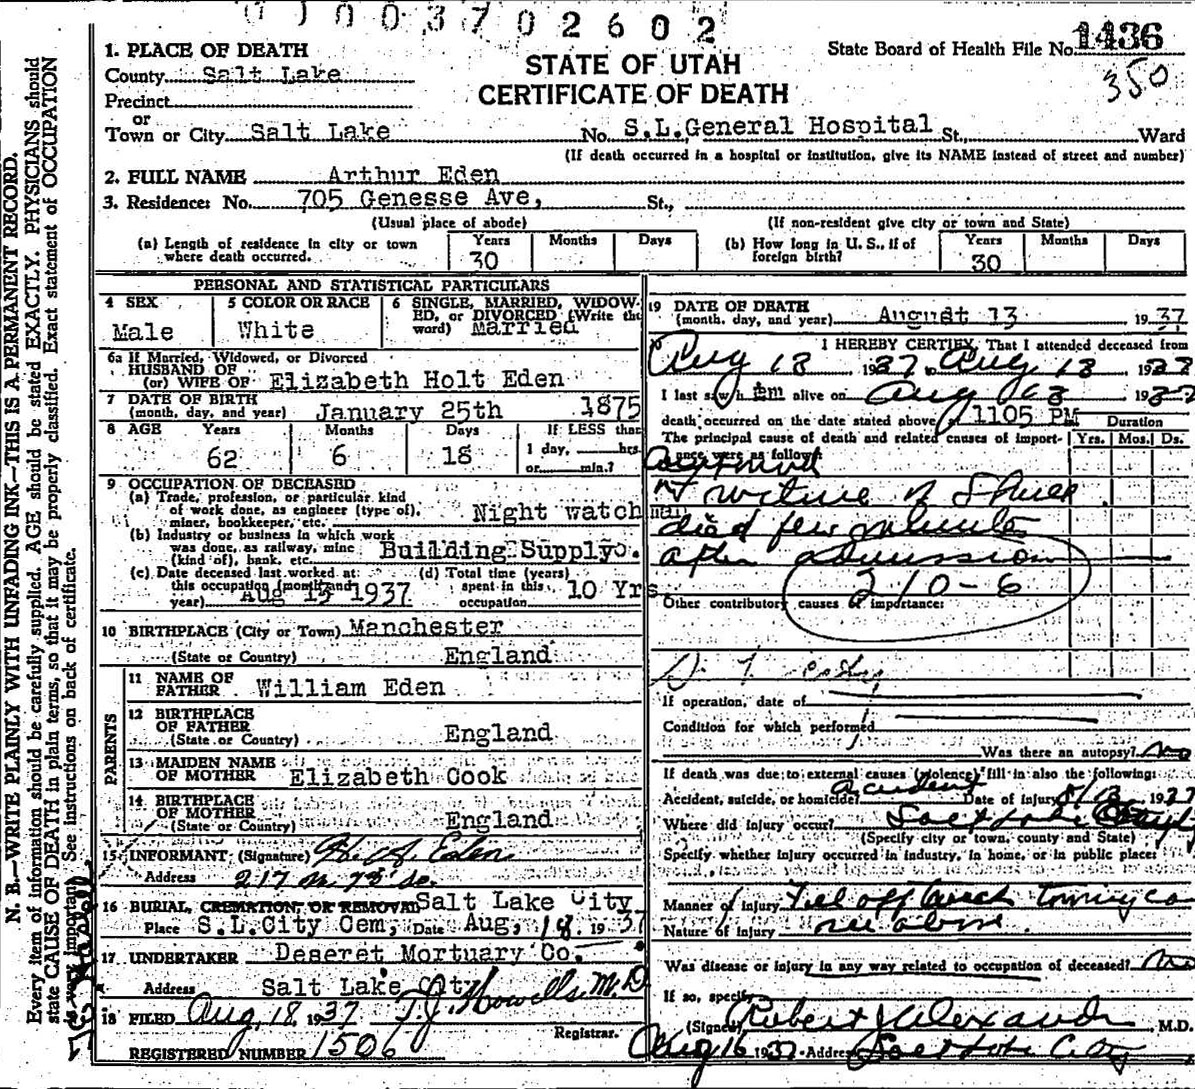 1003702602
1. PLACE OF DEATH
County Salt Lake
Precinct
or
Town or City Salt Lake No. S.L. General Hospital St., Ward
STATE OF UTAH
CERTIFICATE OF DEATH
State Board of Health File No. 1436
350
(If death occurred in a hospital or institution, give its NAME instead of street and number)
2. FULL NAME Arthur Eden
3. Residence: No. 705 Genesse Ave, St.,
(Usual place of abode) (If non-resident give city or town and State)
(a) Length of residence in city or town where death occurred. Years 30 Months Days
(b) How long in U. S., if of foreign birth? Years 30 Months Days
PERSONAL AND STATISTICAL PARTICULARS
4 SEX Male
5 COLOR OR RACE White
6 SINGLE, MARRIED, WIDOWED, or DIVORCED (Write the word) married
6a If Married, Widowed, or Divorced
HUSBAND OF
(or) WIFE OF Elizabeth Holt Eden
7 DATE OF BIRTH
(month, day, and year) January 25th 1875
8 AGE Years 62 Months 6 Days 18 If LESS than 1 day, hrs. or min.?
9 OCCUPATION OF DECEASED
(a) Trade, profession, or particular kind
of work done, as engineer (type of),
miner, bookkeeper, etc. Night watchman
(b) Industry or business in which work
was done, as railway, mine
(kind of), bank, etc. Building Supply.
(c) Date deceased last worked at
this occupation (month and
year) Aug 13 1937
(d) Total time (years)
spent in this
occupation 10 Yrs.
10 BIRTHPLACE (City or Town) Manchester
(State or Country) England
PARENTS
11 NAME OF
FATHER William Eden
12 BIRTHPLACE
OF FATHER
(State or Country) England
13 MAIDEN NAME
OF MOTHER Elizabeth Cook
14 BIRTHPLACE
OF MOTHER
(State or Country) England
15 INFORMANT (Signature) H. A. Eden
Address
16 BURIAL, CREMATION, OR REMOVAL Salt Lake City
Place S.L.City Cem, Date Aug, 18. 1937
17 UNDERTAKER Deseret Mortuary Co.
Address Salt Lake City
18 FILED Aug, 18. 1937 T.J. Howells M.D
Registrar.
REGISTERED NUMBER 1506
19 DATE OF DEATH
(month, day, and year) August 13 1937
I HEREBY CERTIFY, That I attended deceased from
Aug 13 1937, Aug 13 1937
I last saw h im alive on Aug 13 1937
death occurred on the date stated above 1105 PM
Duration
The principal cause of death and related causes of importance were as follows: Yrs. Mos. Ds.
fracture of Skull
died few minutes
after admission
210-6
Other contributory causes of importance:
If operation, date of
Condition for which performed
Was there an autopsy? No
If death was due to external causes (violence) fill in also the following:
Accident, suicide, or homicide? Accident Date of injury 8/13 1937
Where did injury occur? Salt Lake City
(Specify city or town, county and State)
Specify whether injury occurred in industry, in home, or in public place:
Manner of injury Fell off
Nature of injury see above.
Was disease or injury in any way related to occupation of deceased? No
If so, specify
(Signed) Robert J Alexander M.D.
Aug 16 1937 Address Salt Lake City
N. B.—WRITE PLAINLY WITH UNFADING INK—THIS IS A PERMANENT RECORD.
Every item of information should be carefully supplied. AGE should be stated EXACTLY. PHYSICIANS should
state CAUSE OF DEATH in plain terms, so that it may be properly classified. Exact statement of OCCUPATION
is very important. See instructions on back of certificate.